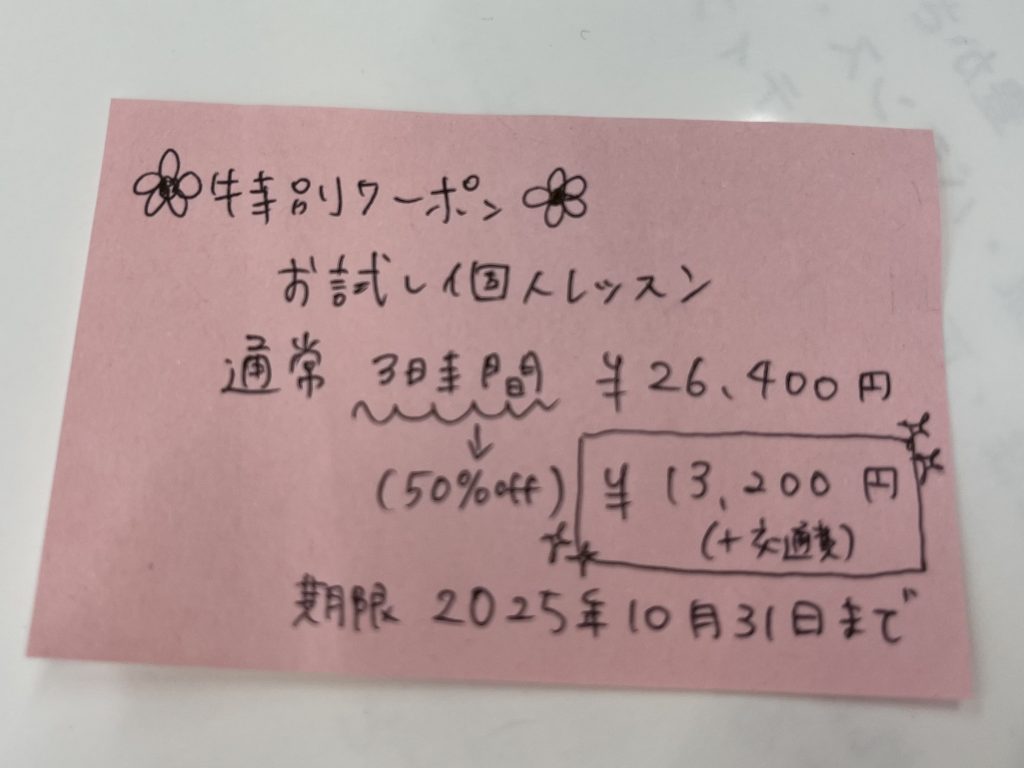 特別クーポン
お試し個人レッスン
通常 3時間 ¥26,400円
↓
(50%off) ¥13,200円
(+交通費)
期限 2025年10月31日まで